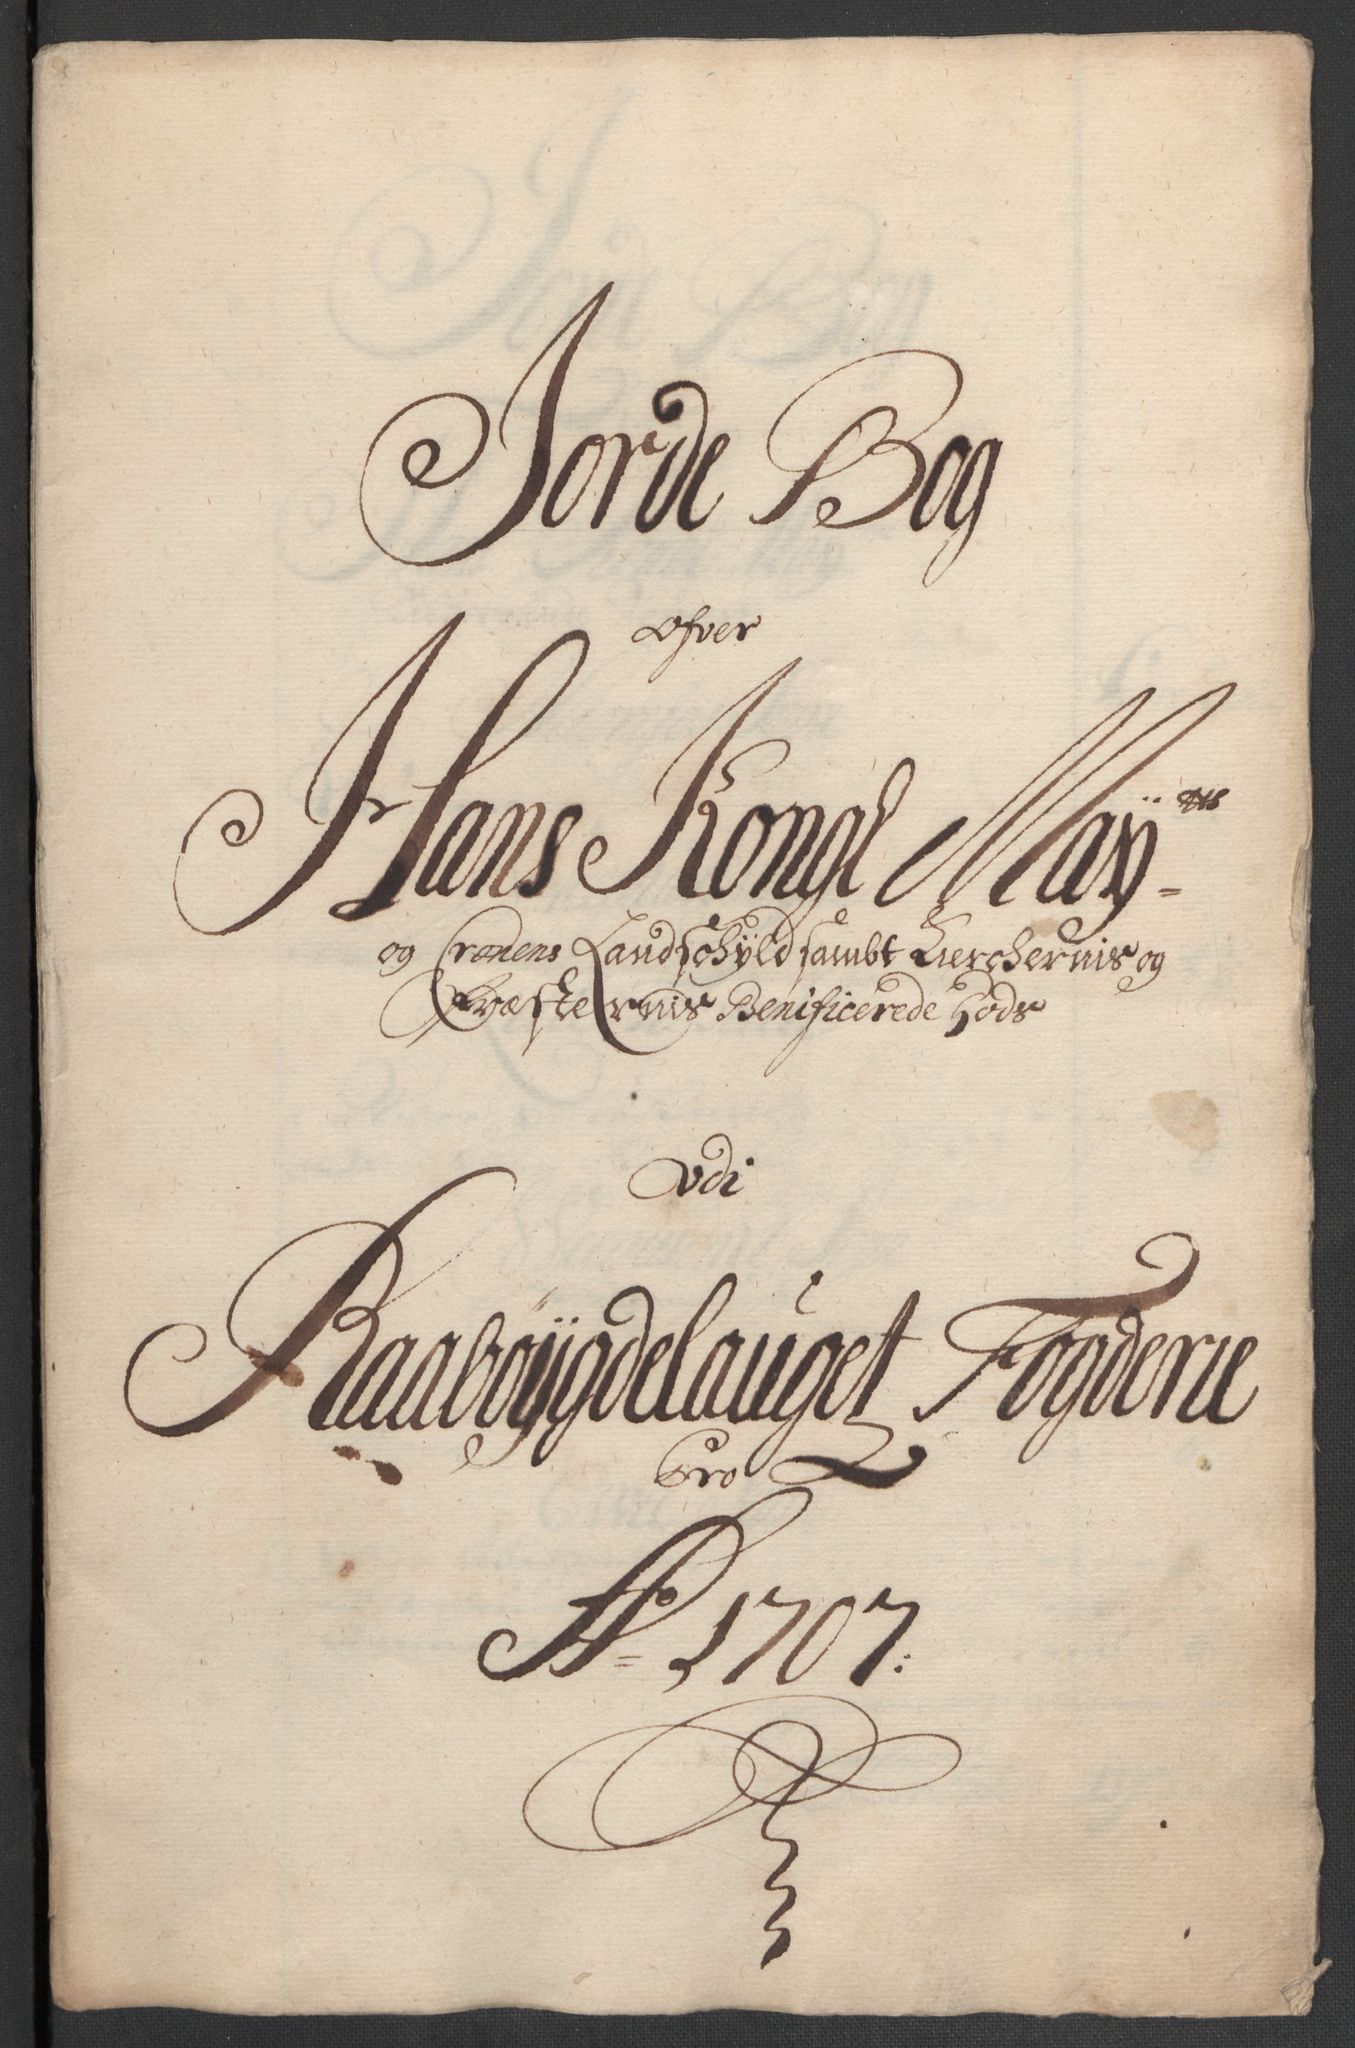 Jorde Bog
ofver
Hans Kongl Maÿ=ᵗᵗˢ
og Cronens Landschÿld sambt Kierchernis og
Præsternis Benificerede Gods
vdi
Raabøÿgdelauget Fogderie
Pro
Aº= 1707: